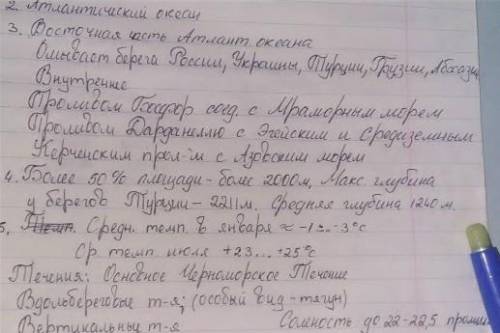 2. Атлантический океан
3. Восточная часть Атлант. океана
Омывает берега России, Украины, Турции, Грузии, Абхазии
Внутреннее
Проливом Босфор соед. с Мраморным морем
Проливом Дарданеллы с Эгейским и Средиземным
Керченским прол-м с Азовским морем
4. Более 50% площади - более 2000м. Макс. глубина
у берегов Турции - 2211м. Средняя глубина 1240 м.
5. Темп. Средн. темп. в января ≈ -1...-3°с
Ср. темп. июля +23...+25°с
Течения: Основное Черноморское Течение
Вдольбереговые т-я; (особый вид - тягун)
Вертикальные т-я Соленость до 22-22,5 промил